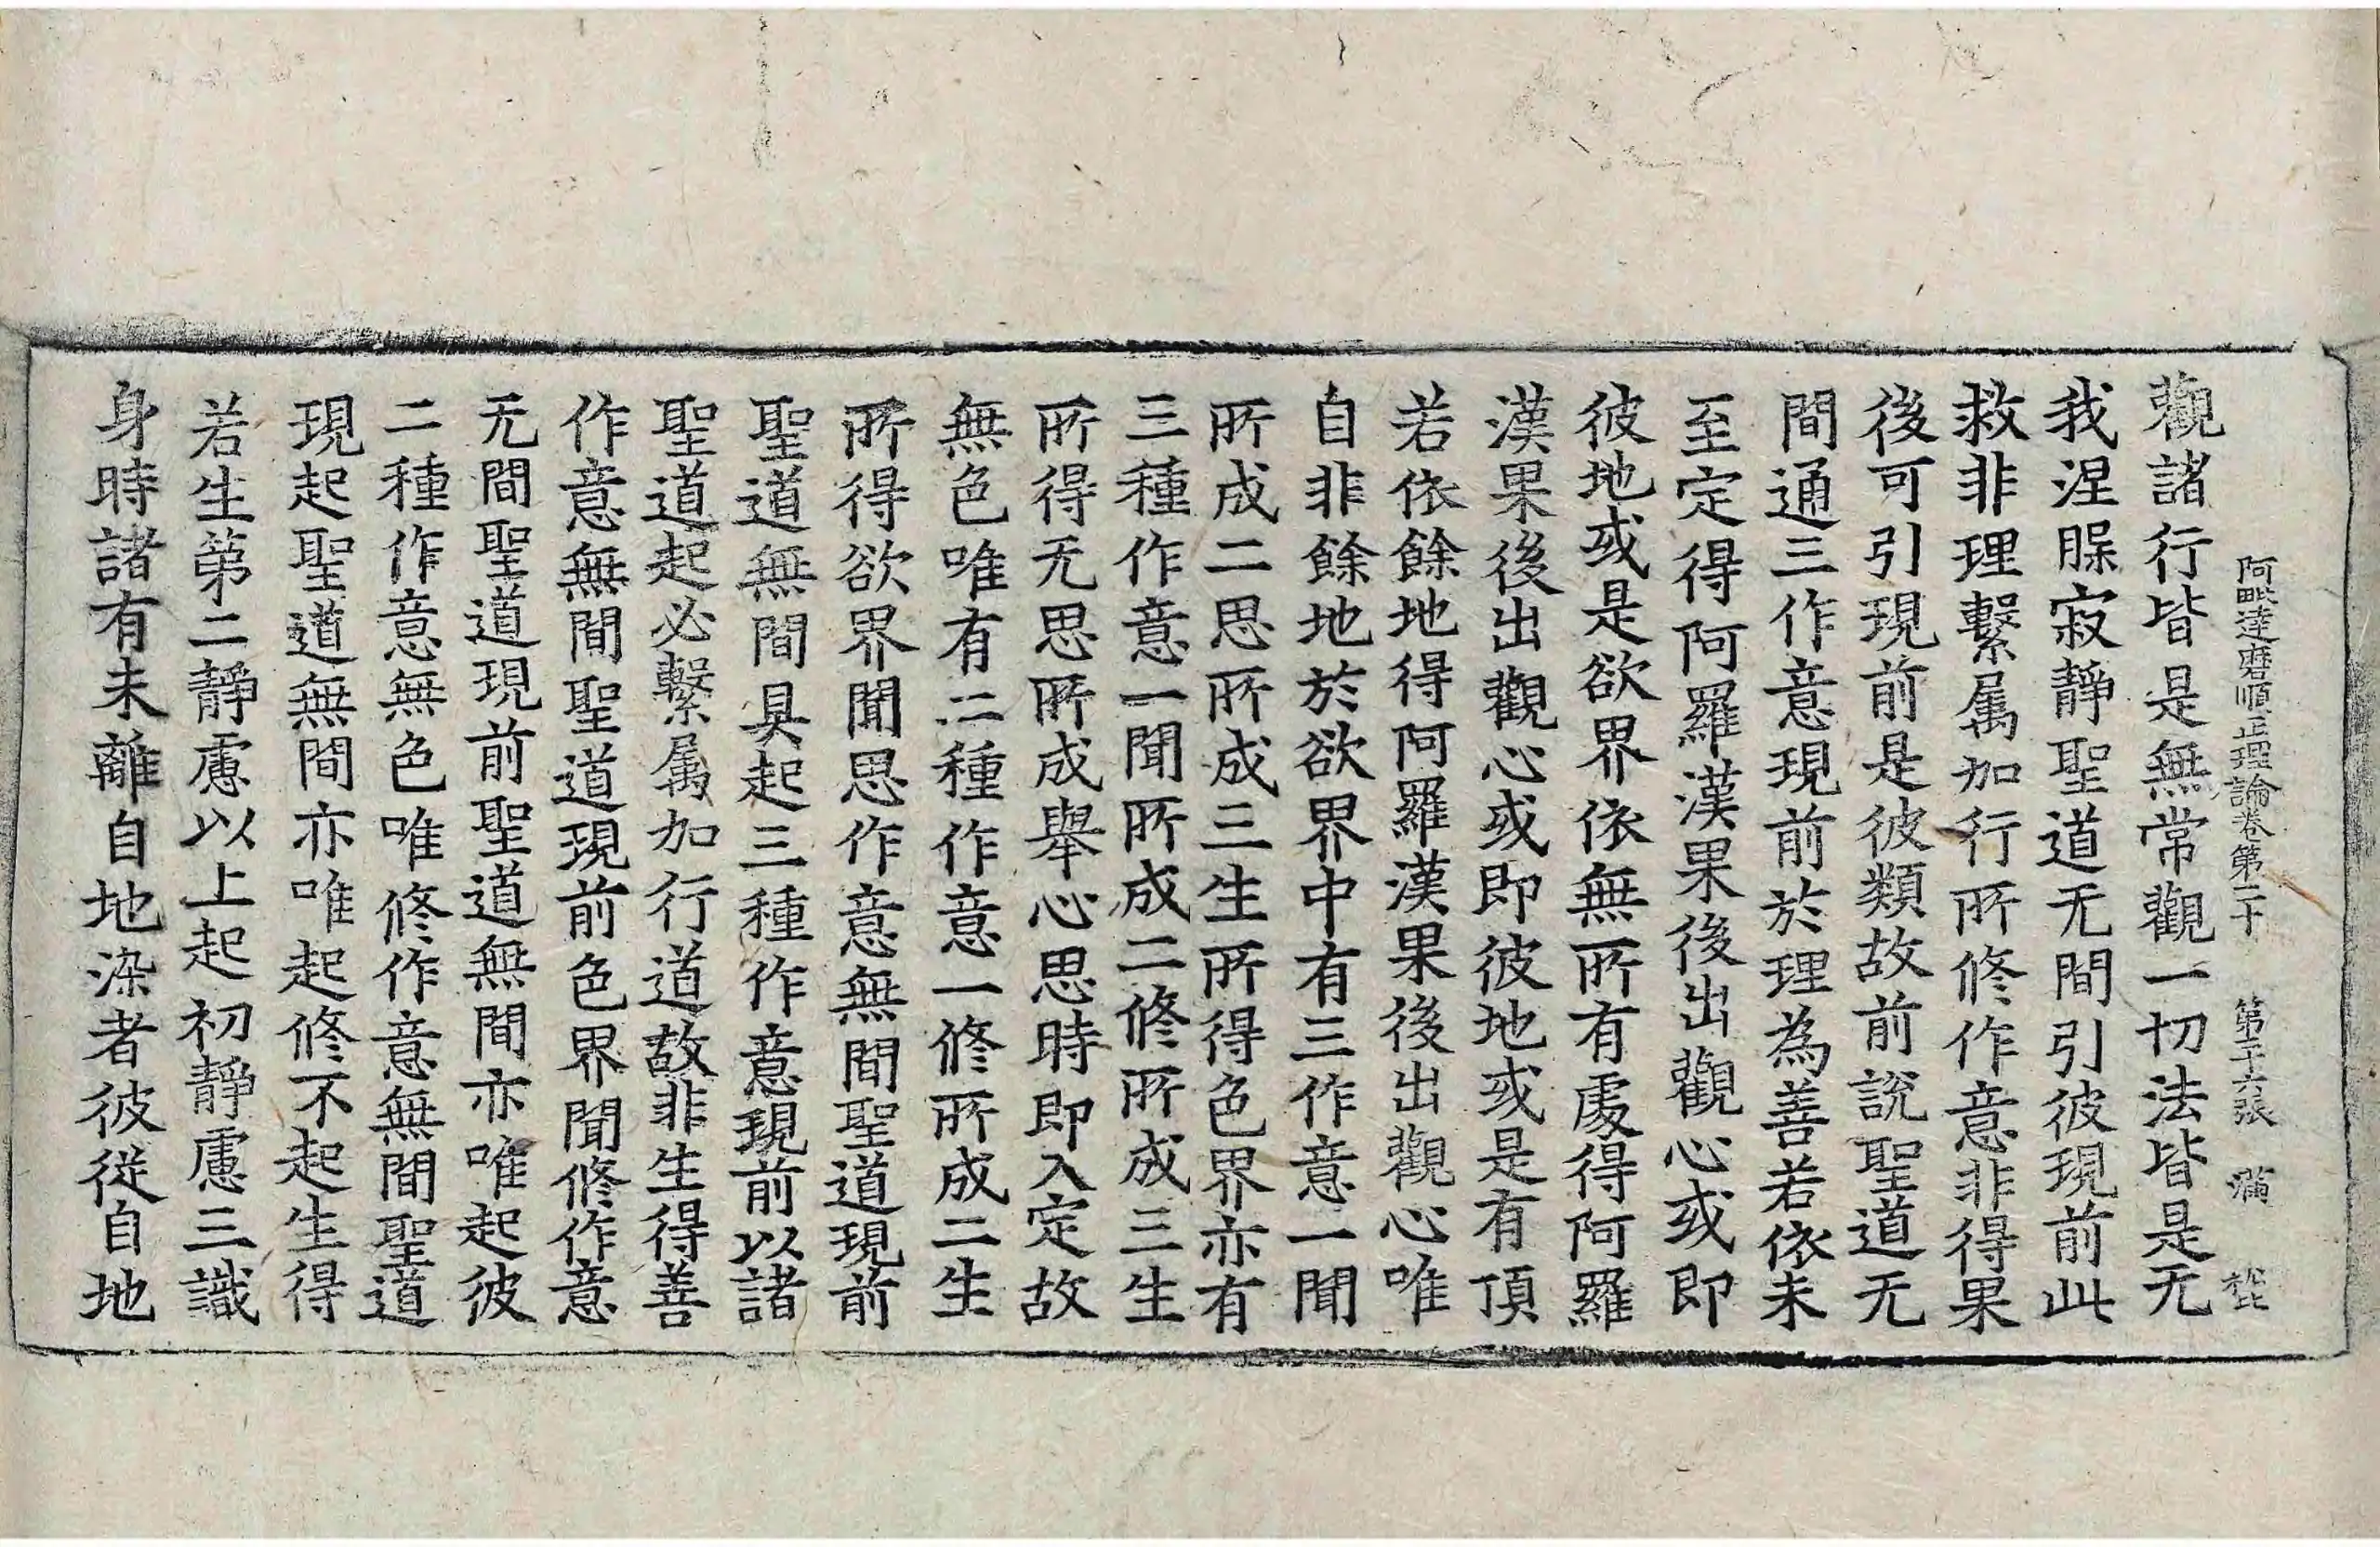 阿毗達磨順正理論卷第二下 第二十六張 滿 枇
觀諸行皆是無常觀一切法皆是无
我涅脵寂靜聖道无間引彼現前此
救非理繫属加行所修作意非得果
後可引現前是彼類故前說聖道无
間通三作意現前於理為善若依未
至定得阿羅漢果後出觀心或即
彼地或是欲界依無所有處得阿羅
漢果後出觀心或即彼地或是有頂
若依餘地得阿羅漢果後出觀心唯
自非餘地於欲界中有三作意一聞
所成二思所成三生所得色界亦有
三種作意一聞所成二修所成三生
所得无思所成舉心思時即入定故
無色唯有二種作意一修所成二生
所得欲界聞思作意無間聖道現前
聖道無間具起三種作意現前以諸
聖道起必繫属加行道故非生得善
作意無間聖道現前色界聞修作意
无間聖道現前聖道無間亦唯起彼
二種作意無色唯修作意無間聖道
現起聖道無間亦唯起修不起生得
若生第二靜慮以上起初靜慮三識
身時諸有未離自地染者彼従自地